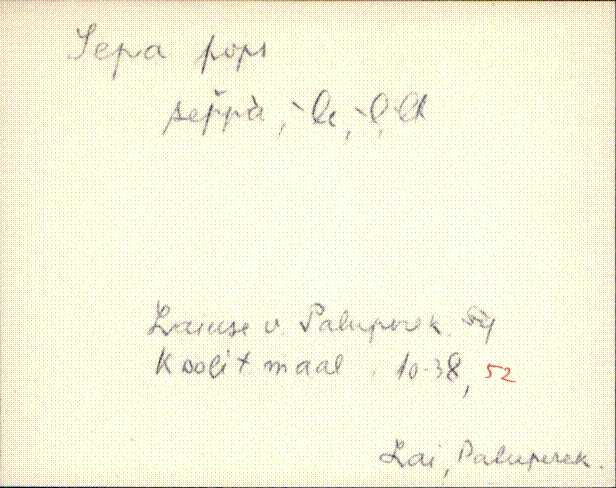 Sepa pops
sep̌pà, -̀le, -̀l,
Laiuse v. Paluperek.
Koolit maal. 10-38, 52
Lai, Paluperek.